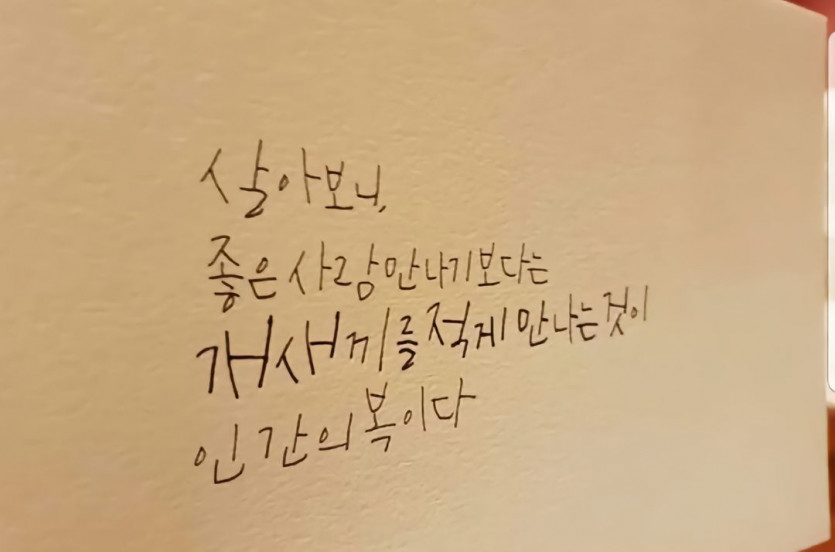 살아보니,
좋은 사람 만나기보다는
개새끼를 적게 만나는 것이
인간의 복이다